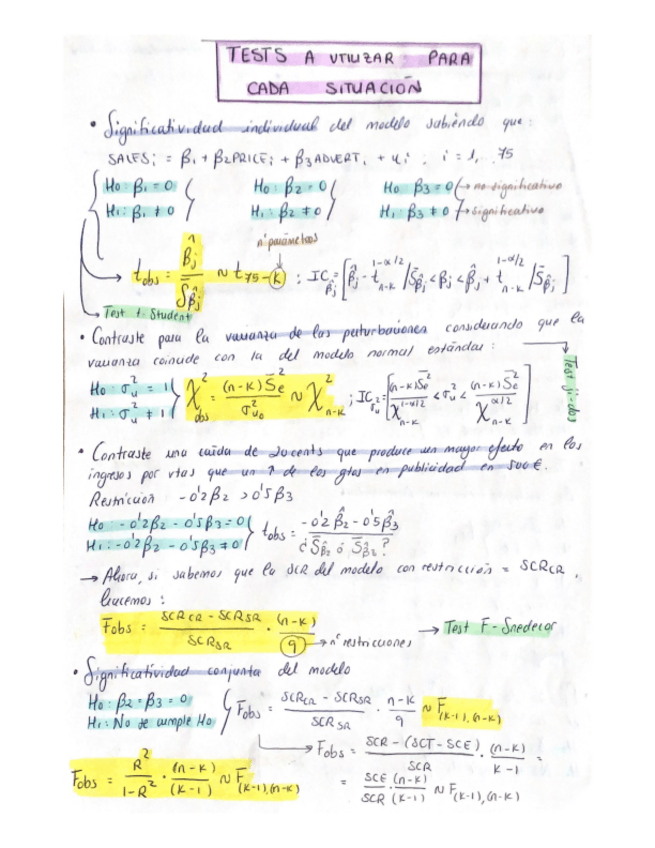 TESTS A UTILIZAR PARA
CADA SITUACIÓN
• Significatividad individual del modelo sabiendo que:
SALES_i = β₁ + β₂PRICE_i + β₃ADVERT_i + u_i ; i = 1, .. 75
H₀: β₁ = 0   H₀: β₂ = 0   H₀ β₃ = 0 → no significativo
H₁: β₁ ≠ 0   H₁: β₂ ≠ 0   H₁: β₃ ≠ 0 → significativo
nº parámetros
t_obs = β̂_j / S̄_β̂_j ~ t_75-K ; IC_β̂_j = [β̂_j - t_{n-K}^{1-α/2} / S̄_β̂_j < β_j < β̂_j + t_{n-K}^{1-α/2} / S̄_β̂_j]
Test t-Student
• Contraste para la varianza de las perturbaciones considerando que la
varianza coincide con la del modelo normal estándar:
H₀: σ_u² = 1
H₁: σ_u² ≠ 1
χ²_obs = (n-K)S̄e² / σ²_u₀ ~ χ²_{n-K} ; IC_σ_u² = [(n-K)S̄e² / χ_{n-K}^{1-α/2} < σ_u² < (n-K)S̄e² / χ_{n-K}^{α/2}]
Test ji-dos
• Contraste una caída de 20 cents que produce un mayor efecto en los
ingresos por vtas que un ↑ de los gtos en publicidad en 500€.
Restricción -0'2β₂ > 0'5β₃
H₀: -0'2β₂ - 0'5β₃ = 0
H₁: -0'2β₂ - 0'5β₃ ≠ 0
t_obs = -0'2β̂₂ - 0'5β̂₃ / ¿S̄_β̂₂ ó S̄_β̂₂?
→ Ahora, si sabemos que la SCR del modelo con restricción = SCR_CR,
hacemos:
F_obs = SCR_CR - SCR_SR / SCR_SR · (n-K) / q → nº restricciones → Test F-Snedecor
• Significatividad conjunta del modelo
H₀: β₂ = β₃ = 0
H₁: No se cumple H₀
F_obs = SCR_CR - SCR_SR / SCR_SR · n-K / q ~ F_(K-1),(n-K)
→ F_obs = SCR - (SCT - SCE) / SCR · (n-K) / K-1 =
= SCE / SCR · (n-K) / (K-1) ~ F_(K-1),(n-K)
F_obs = R² / 1-R² · (n-K) / (K-1) ~ F_(K-1),(n-K)